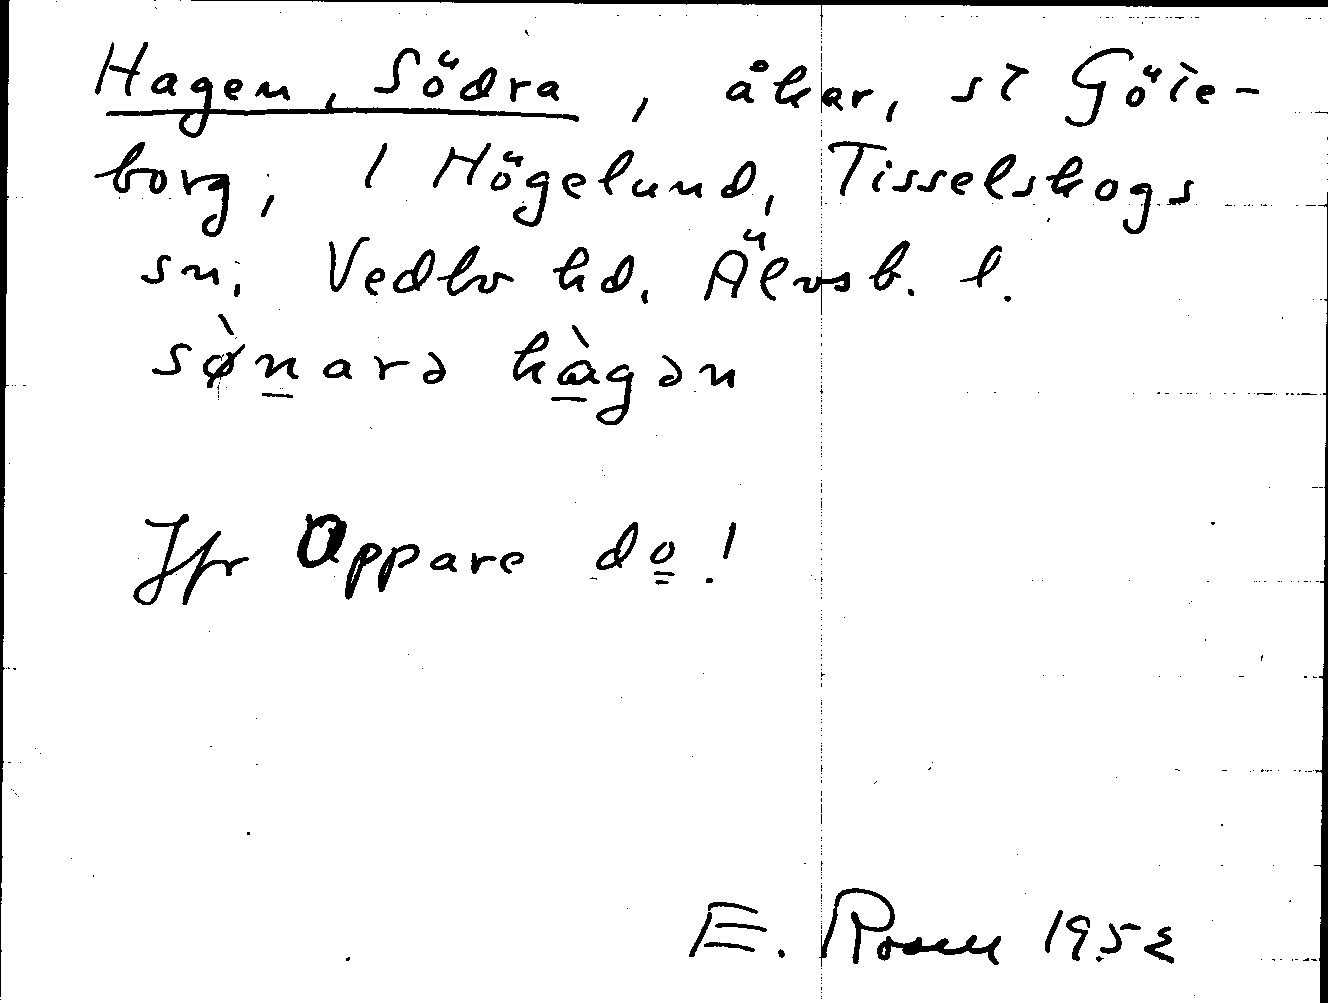 Hagen, Södra, åker, st Göte-
borg, 1 Högelund, Tisselskogs
sn, Vedbo hd. Älvsb. l.
sø̀narə hàgən
Jfr Oppare do!
E. Rosen 1952